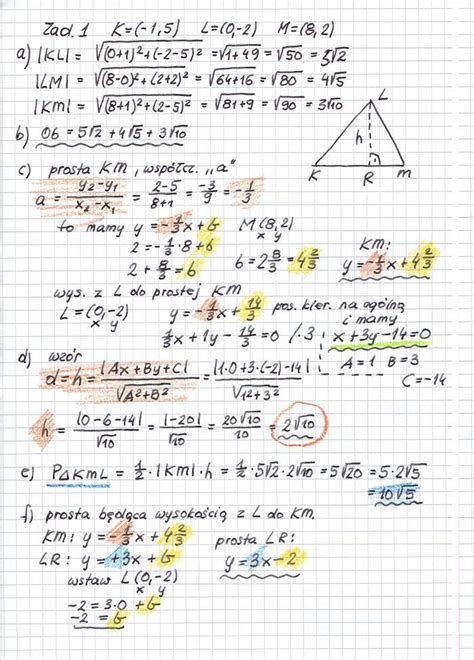 Zad. 1 K=(-1,5) L=(0,-2) M=(8,2)
a) |KL| = √(0+1)²+(-2-5)² = √1+49 = √50 = 5√2
|LM| = √(8-0)²+(2+2)² = √64+16 = √80 = 4√5
|KM| = √(8+1)²+(2-5)² = √81+9 = √90 = 3√10
b) Ob = 5√2 + 4√5 + 3√10
L
h
K R M
c) prosta KM, współcz. „a"
a = y₂-y₁/x₂-x₁ = 2-5/8+1 = -3/9 = -1/3
to mamy y = -1/3x+b M(8,2)
x y
2 = -1/3·8+b
2 + 8/3 = b
b = 2 8/3 = 4 2/3
KM:
y = -1/3x + 4 2/3
wys. z L do prostej KM
L = (0,-2)
x y
y = -1/3x + 14/3 pos. kier. na ogólną
i mamy
1/3x + 1y - 14/3 = 0 /·3
x + 3y - 14 = 0
A = 1 B = 3
C = -14
d) wzór
d = h = |Ax+By+C|/√A²+B² = |1·0+3·(-2)-14|/√1²+3²
h = |0-6-14|/√10 = |-20|/√10 = 20√10/10 = 2√10
e) P△KML = 1/2·|KM|·h = 1/2·5√2·2√10 = 5√20 = 5·2√5
= 10√5
f) prosta będąca wysokością z L do KM.
KM: y = -1/3x + 4 2/3 prosta LR:
LR: y = +3x + b y = 3x - 2
wstaw L(0,-2)
x y
-2 = 3·0 + b
-2 = b